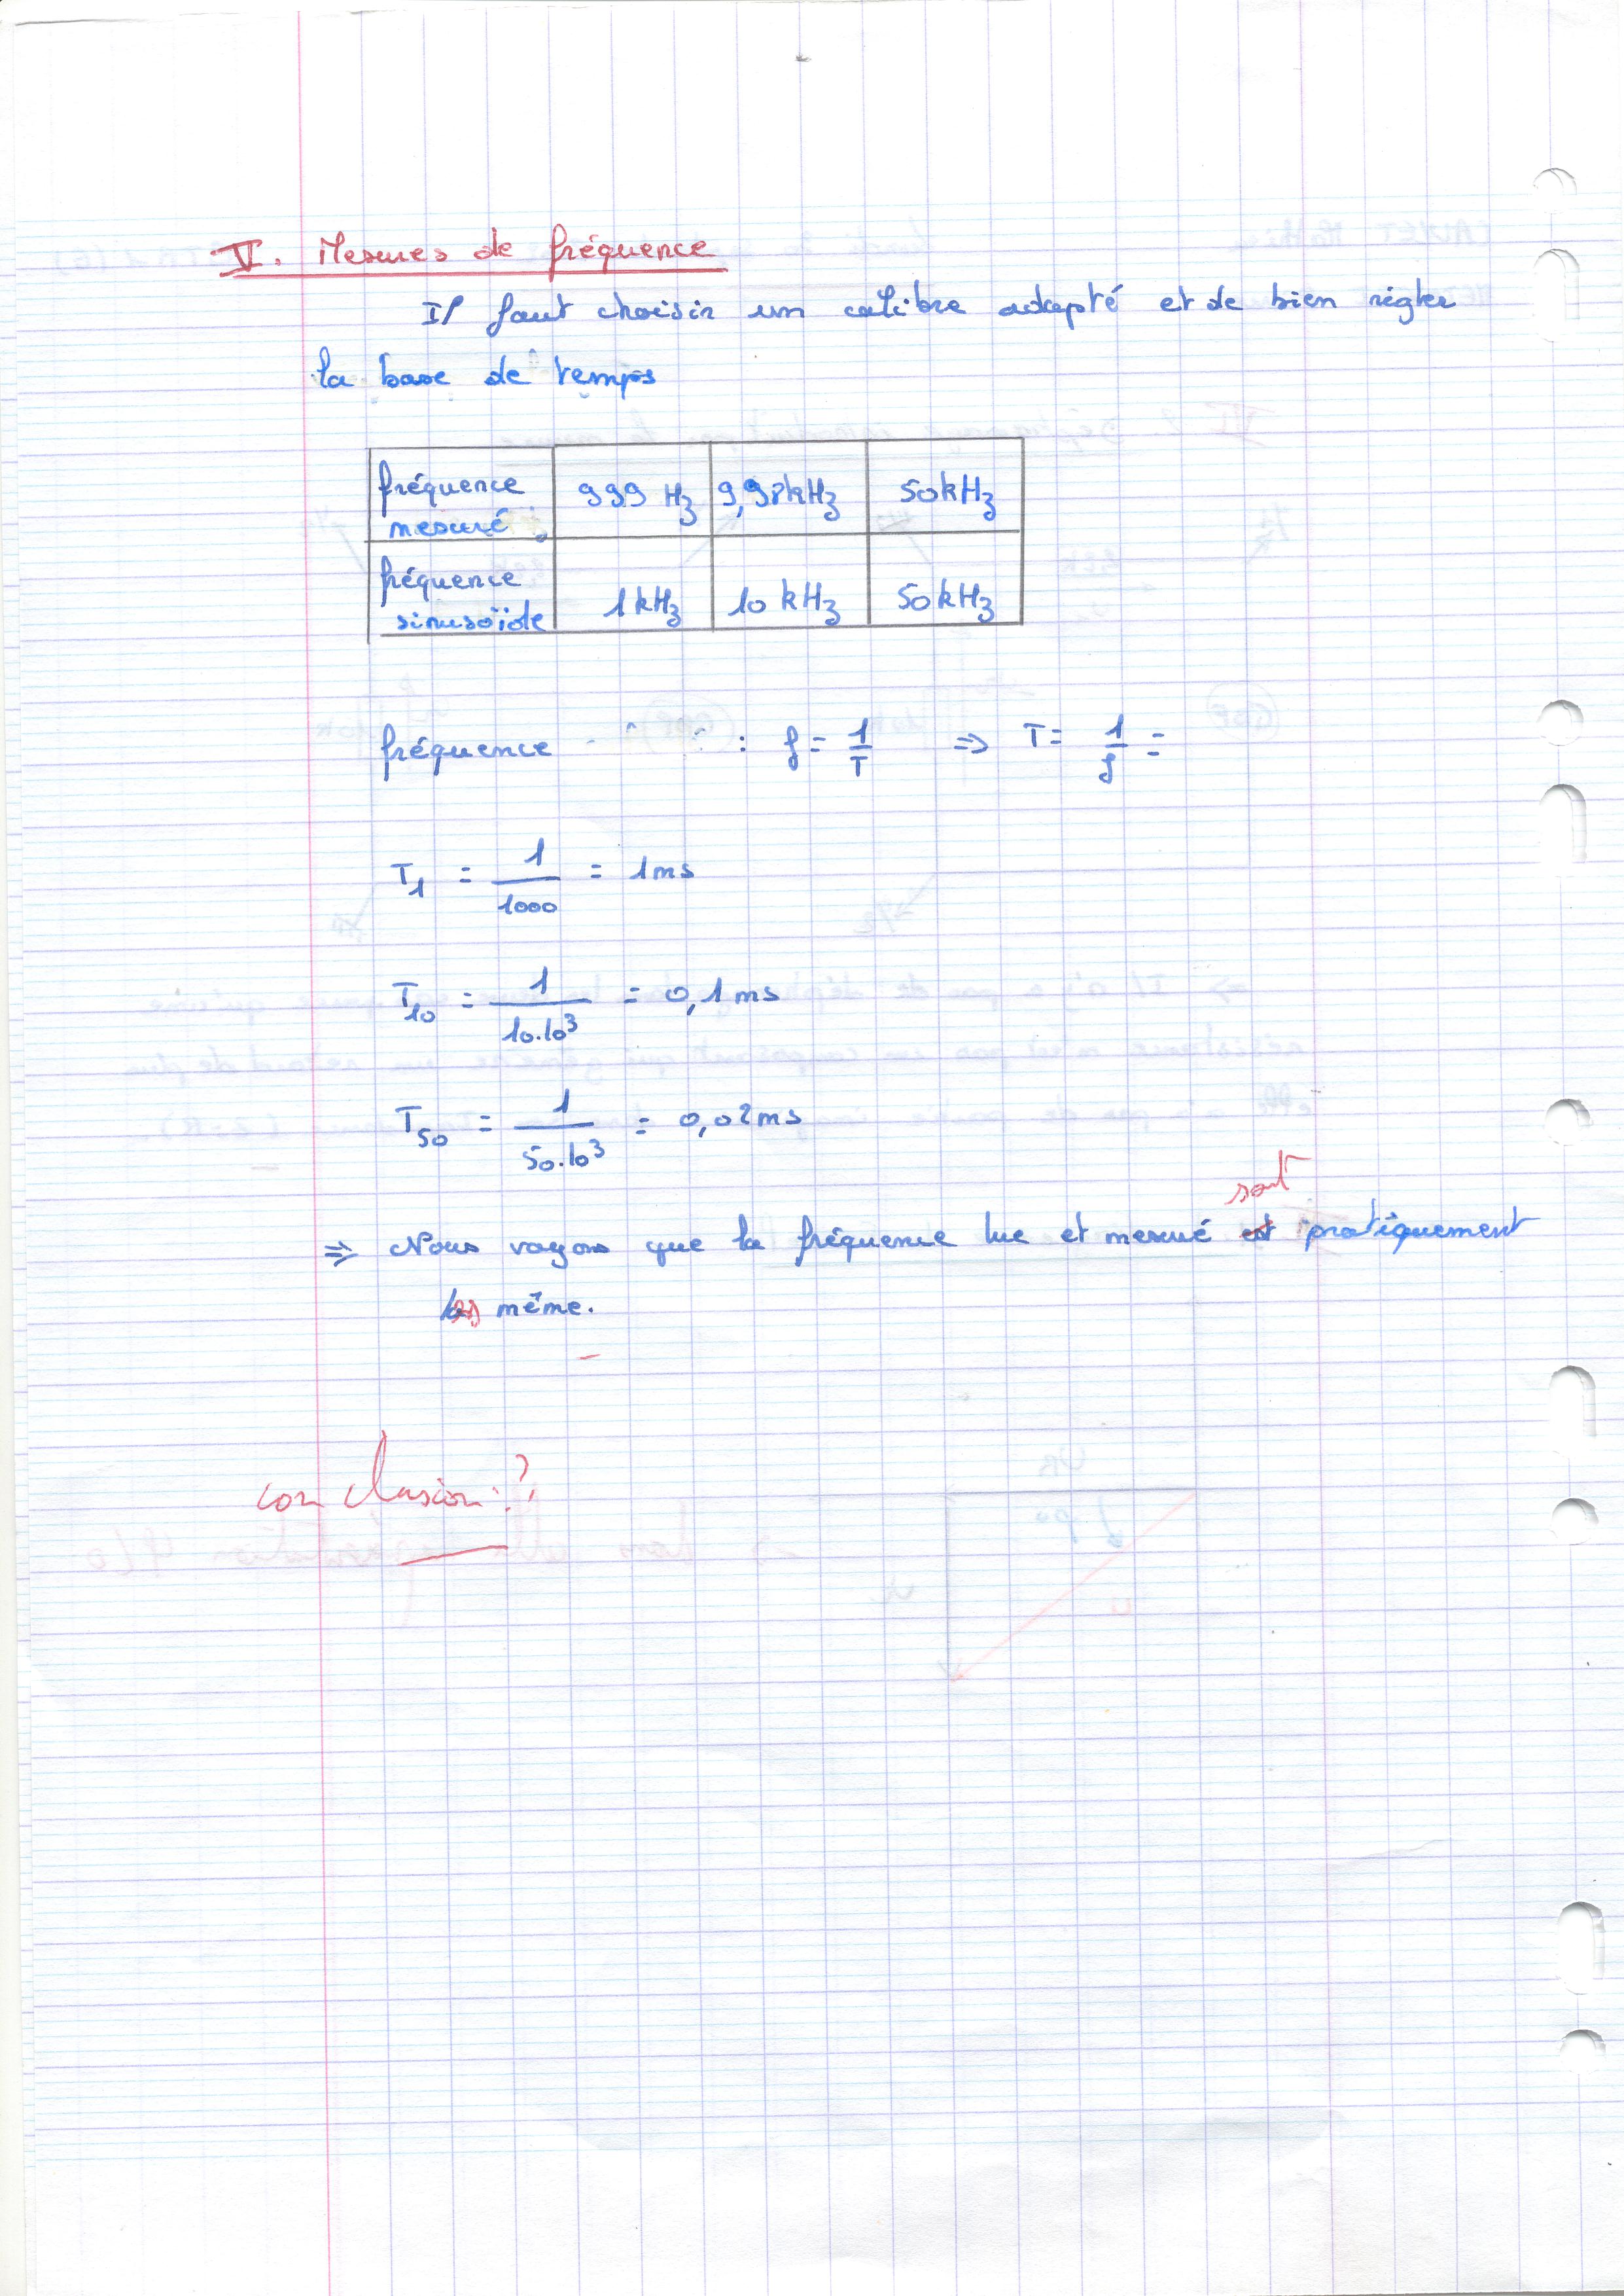 V. Mesures de fréquence
Il faut choisir un calibre adapté et de bien régler
la base de temps
fréquence mesuré 999 Hz 9,98kHz 50kHz
fréquence sinusoïde 1kHz 10 kHz 50kHz
fréquence : f = 1/T => T = 1/f =
T1 = 1/1000 = 1ms
T10 = 1/10.10³ = 0,1ms
T50 = 1/50.10³ = 0,02ms
sont
=> Nous voyons que la fréquence lue et mesuré est pratiquement
les même.
conclusion:?